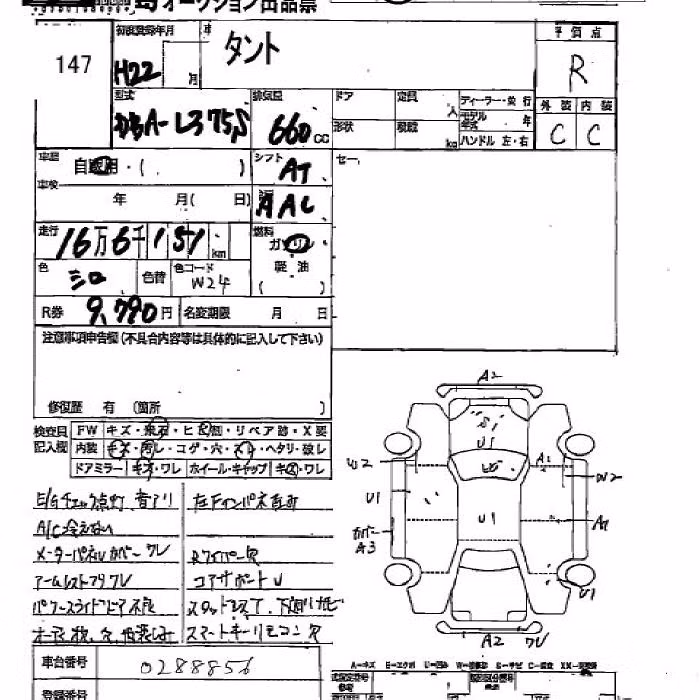 オークション出品票
147
初度登録年月
H22 月
車
タント
評価点
R
型式
DBA-L375S
排気量
660 cc
ドア
定員 人
形状
積載 kg
ディーラー・並行
モデル年式 年
ハンドル 左・右
外装 内装
C C
車歴
自家用・( )
シフト
AT
セー
車検
年 月( 日)
AAC
走行
16万6千151 km
燃料
ガソリン
軽油
( )
色
シロ
色替
色コード
W24
R券 9,790円
名変期限 月 日
注意事項申告欄(不具合内容等は具体的に記入して下さい)
修復歴 有 (箇所 )
検査員記入欄
FW キズ・飛石・ヒビ割・リペア跡・X要
内装 キズ・汚レ・コゲ・穴・スレ・ヘタリ・破レ
ドアミラー キズ・ワレ ホイール・キャップ キズ・ワレ
E/Gチェック点灯 音アリ
A/C冷えない
メーターパネルカバー ワレ
アームレストフタワレ
パワースライドドア不良
左Fインパネ歪み
Rワイパー欠
コアサポートU
スタッドレスT
スマートキーリモコン欠
A2
S1
U1
A1
W2
U1
U1
カバー
A3
A1
U1
A2 ワレ
車台番号
0288856
登録番号